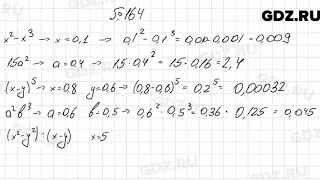 GDZ.RU
№164
x² - x³ → x = 0,1 → 0,1² - 0,1³ = 0,01 - 0,001 = 0,009
15a² → a = 0,4 → 15·0,4² = 15·0,16 = 2,4
(x-y)⁵ → x = 0,8 y = 0,6 → (0,8-0,6)⁵ = 0,2⁵ = 0,00032
a²b³ → a = 0,6 b = 0,5 → 0,6²·0,5³ = 0,36·0,125 = 0,045
(x²-y²):(x-y) x=5